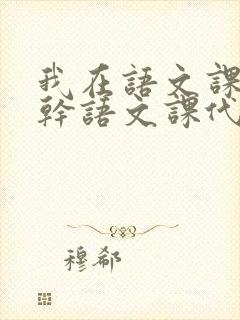 我在語文課
幹語文課代
穆郗